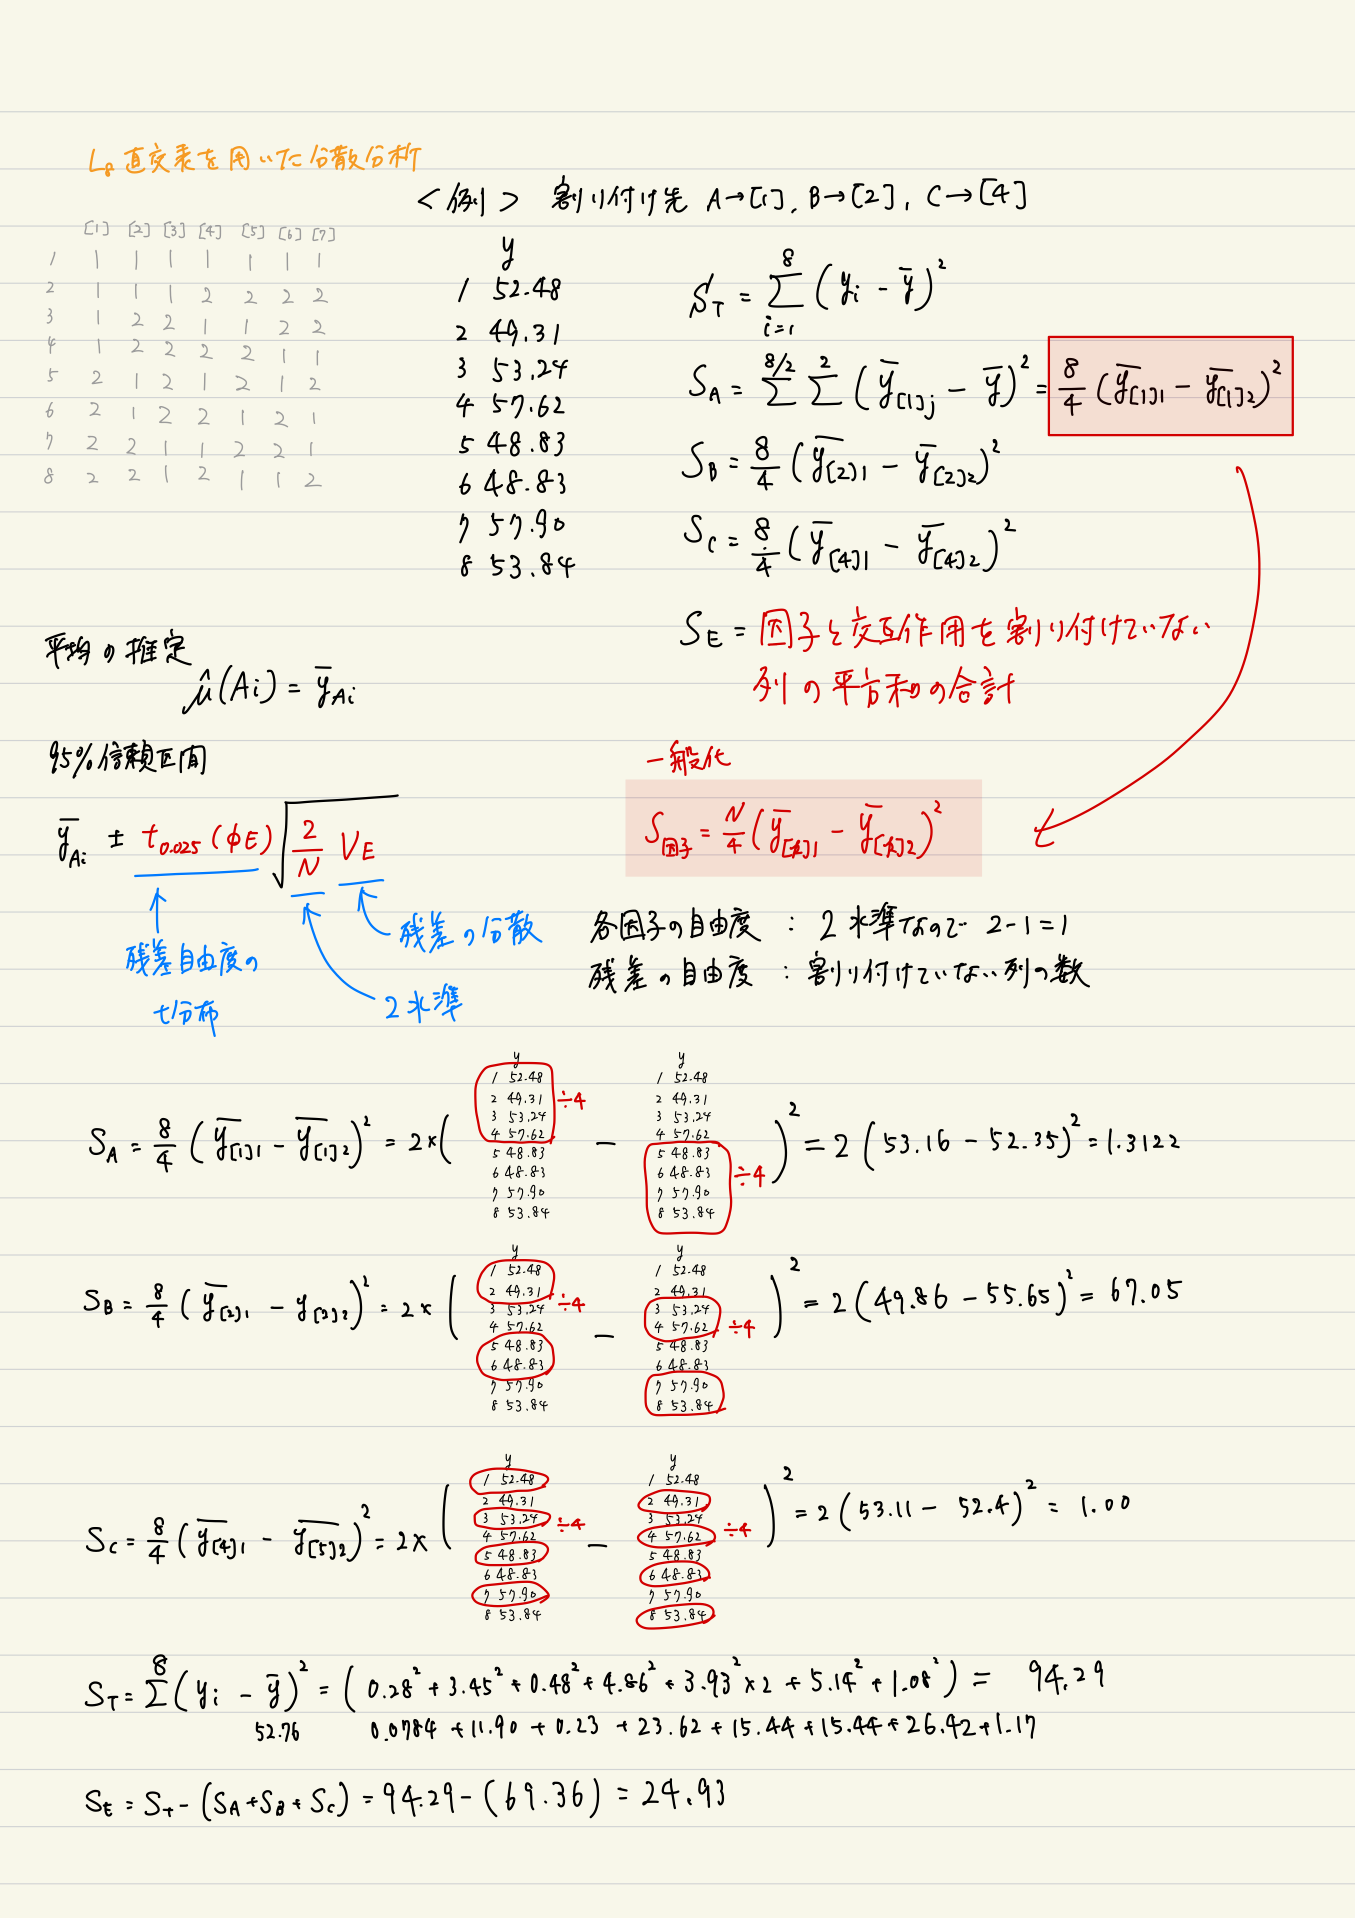 L₈ 直交表を用いた分散分析
<例> 割り付け先 A→[1], B→[2], C→[4]
[1] [2] [3] [4] [5] [6] [7]
1 1 1 1 1 1 1 1
2 1 1 1 2 2 2 2
3 1 2 2 1 1 2 2
4 1 2 2 2 2 1 1
5 2 1 2 1 2 1 2
6 2 1 2 2 1 2 1
7 2 2 1 1 2 2 1
8 2 2 1 2 1 1 2
y
1 52.48
2 49.31
3 53.24
4 57.62
5 48.83
6 48.83
7 57.90
8 53.84
S_T = Σ_{i=1}^{8} (y_i - ȳ)²
S_A = Σ^{8/2} Σ^{2} (ȳ_{[1]j} - ȳ)² = 8/4 (ȳ_{[1]1} - ȳ_{[1]2})²
S_B = 8/4 (ȳ_{[2]1} - ȳ_{[2]2})²
S_C = 8/4 (ȳ_{[4]1} - ȳ_{[4]2})²
S_E = 因子と交互作用を割り付けていない
列の平方和の合計
平均の推定
μ̂(Ai) = ȳ_{Ai}
95%信頼区間
ȳ_{Ai} ± t_{0.025}(φE) √(2/N V_E)
残差自由度の
t分布
残差の分散
2水準
一般化
S_{因子} = N/4 (ȳ_{[k]1} - ȳ_{[k]2})²
各因子の自由度 : 2水準なので 2-1=1
残差の自由度 : 割り付けていない列の数
S_A = 8/4 (ȳ_{[1]1} - ȳ_{[1]2})² = 2×( - )² = 2(53.16 - 52.35)² = 1.3122
y
1 52.48
2 49.31
3 53.24
4 57.62
5 48.83
6 48.83
7 57.90
8 53.84
÷4
y
1 52.48
2 49.31
3 53.24
4 57.62
5 48.83
6 48.83
7 57.90
8 53.84
÷4
S_B = 8/4 (ȳ_{[2]1} - y_{[2]2})² = 2×( - )² = 2(49.86 - 55.65)² = 67.05
y
1 52.48
2 49.31
3 53.24
4 57.62
5 48.83
6 48.83
7 57.90
8 53.84
÷4
y
1 52.48
2 49.31
3 53.24
4 57.62
5 48.83
6 48.83
7 57.90
8 53.84
÷4
S_C = 8/4 (ȳ_{[4]1} - ȳ_{[5]2})² = 2×( - )² = 2(53.11 - 52.4)² = 1.00
y
1 52.48
2 49.31
3 53.24
4 57.62
5 48.83
6 48.83
7 57.90
8 53.84
÷4
y
1 52.48
2 49.31
3 53.24
4 57.62
5 48.83
6 48.83
7 57.90
8 53.84
÷4
S_T = Σ^{8} (y_i - ȳ)² = (0.28² + 3.45² + 0.48² + 4.86² + 3.93²×2 + 5.14² + 1.08²) = 94.29
52.76 0.0784 + 11.90 + 0.23 + 23.62 + 15.44 + 15.44 + 26.42 + 1.17
S_E = S_T - (S_A + S_B + S_C) = 94.29 - (69.36) = 24.93